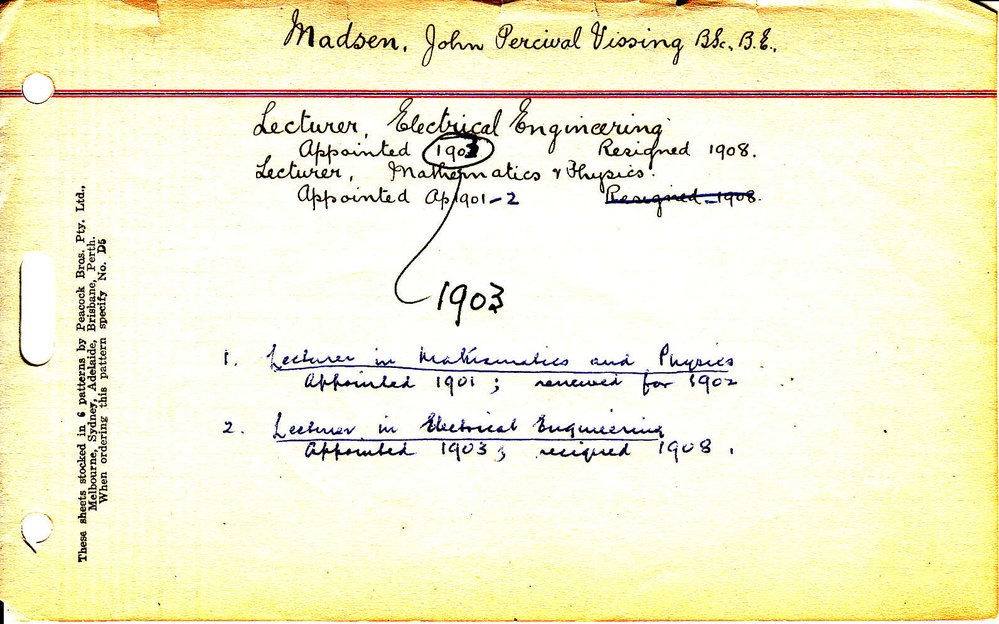 Madsen, John Percival Vissing BSc., B.E.,
Lecturer, Electrical Engineering
Appointed 1903 Resigned 1908.
Lecturer, Mathematics & Physics.
Appointed Ap 1901-2 Resigned 1908.
1903
1. Lecturer in Mathematics and Physics
Appointed 1901; renewed for 1902
2. Lecturer in Electrical Engineering
Appointed 1903; resigned 1908.
These sheets stocked in 6 patterns by Peacock Bros. Pty. Ltd.,
Melbourne, Sydney, Adelaide, Brisbane, Perth.
When ordering this pattern specify No. D5